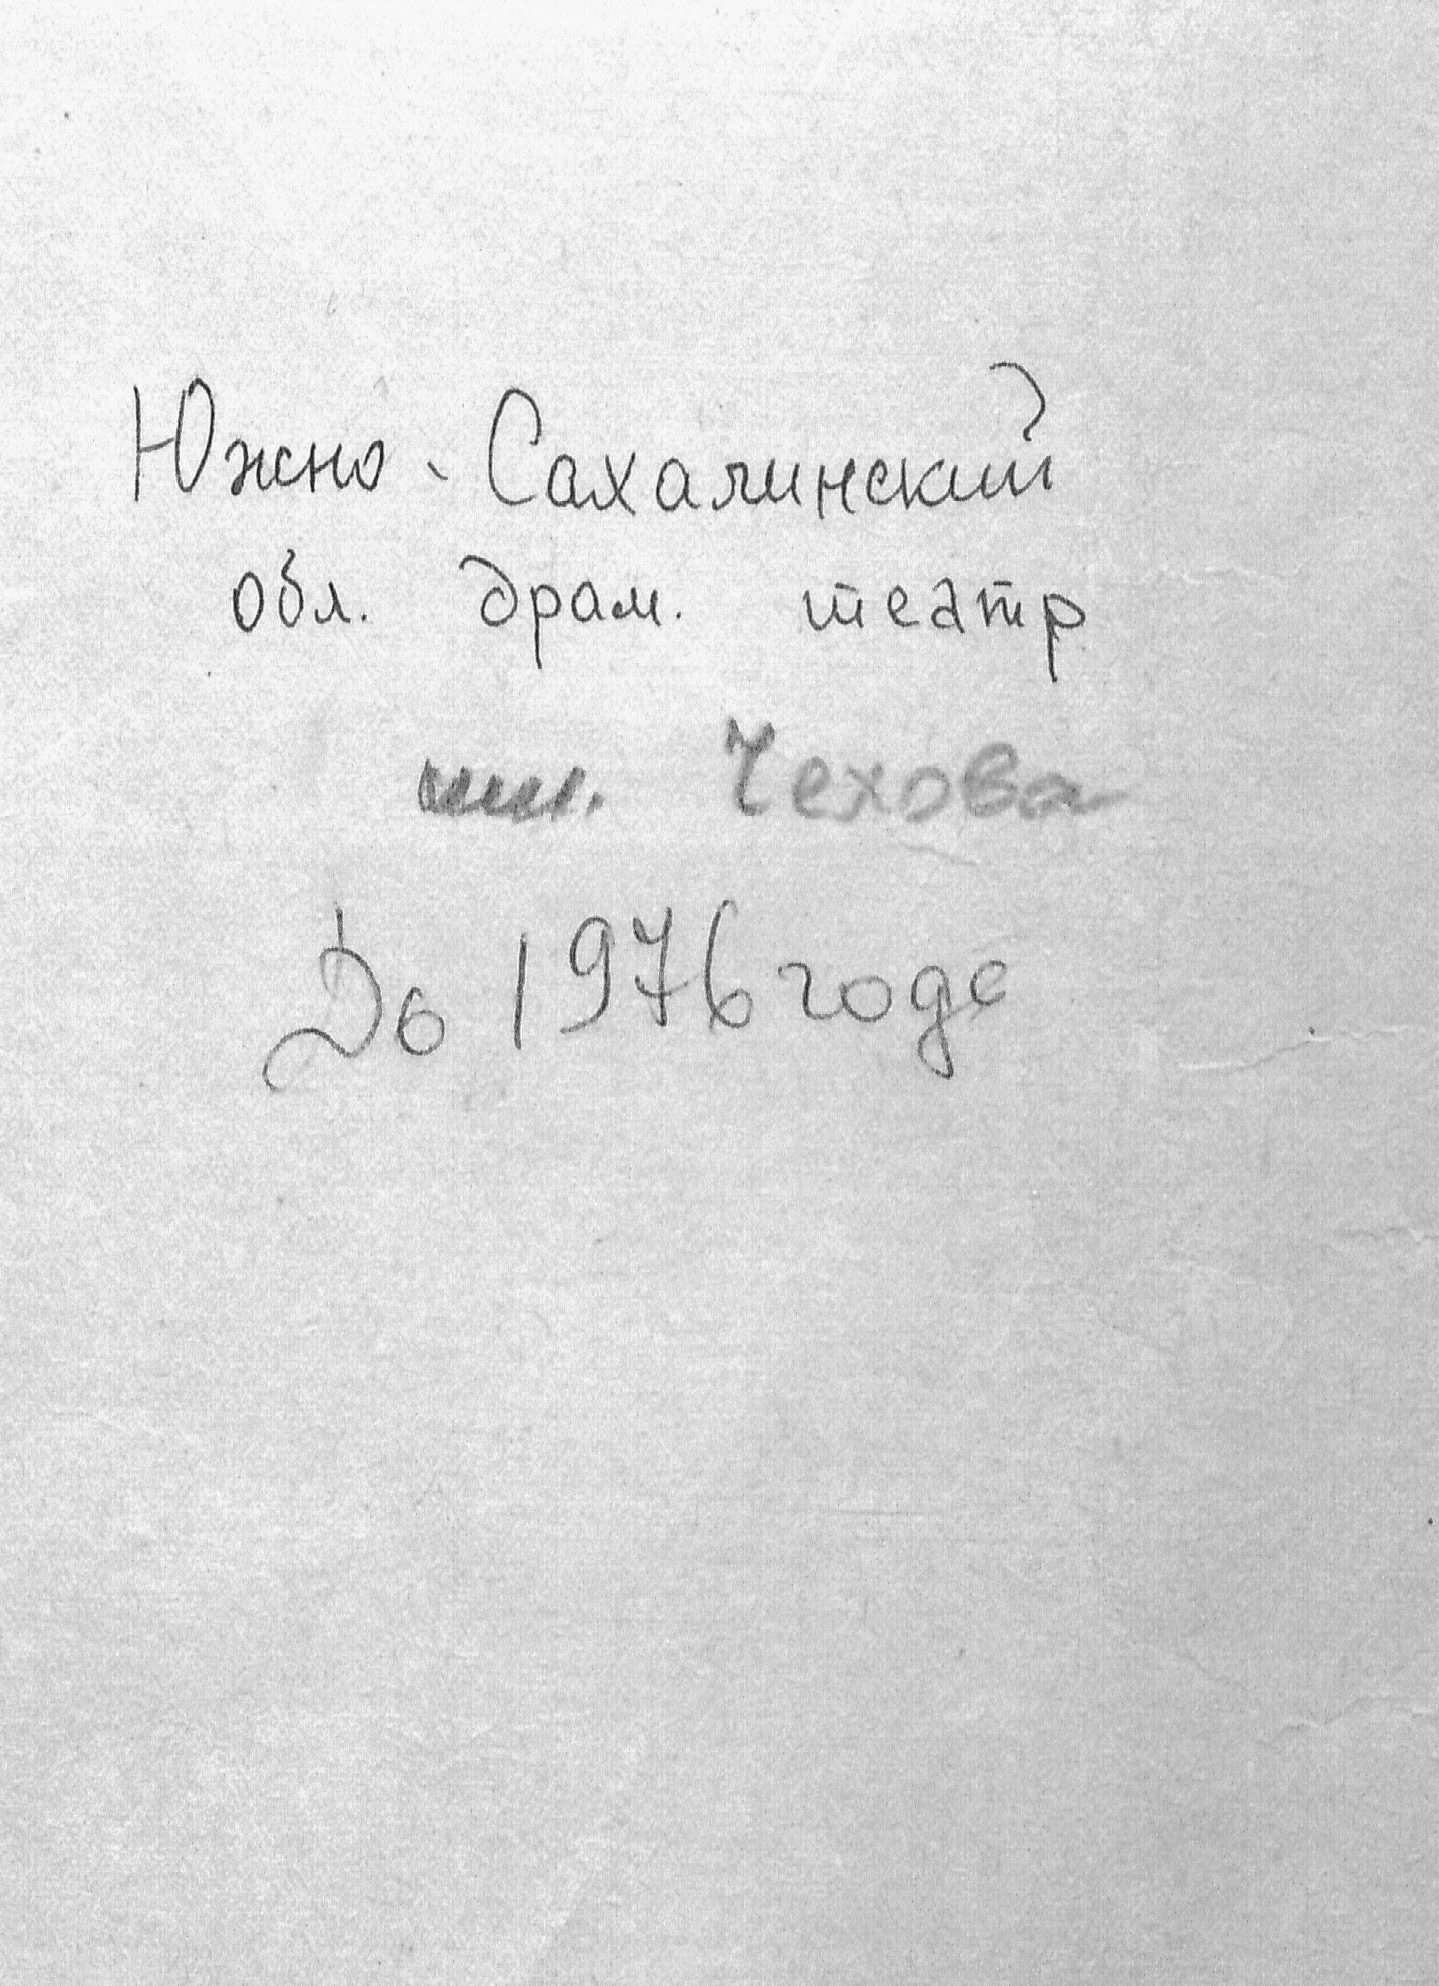 Южно-Сахалинский
обл. драм. театр
им. Чехова
До 1976 года